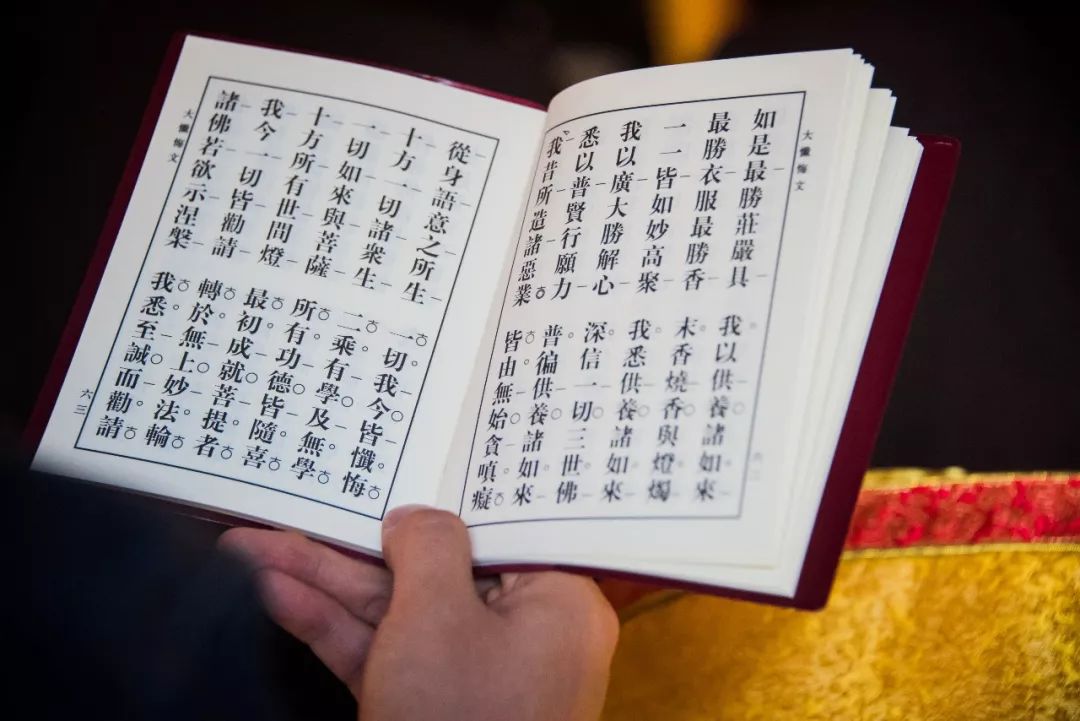 大懺悔文
如是最勝莊嚴具 我以供養諸如來
最勝衣服最勝香 末香燒香與燈燭
一一皆如妙高聚 我悉供養諸如來
我以廣大勝解心 深信一切三世佛
悉以普賢行願力 普徧供養諸如來
我昔所造諸惡業 皆由無始貪嗔癡
從身語意之所生 一切我今皆懺悔
十方一切諸衆生 二乘有學及無學
一切如來與菩薩 所有功德皆隨喜
十方所有世間燈 最初成就菩提者
我今一切皆勸請 轉於無上妙法輪
諸佛若欲示涅槃 我悉至誠而勸請
大懺悔文
六三